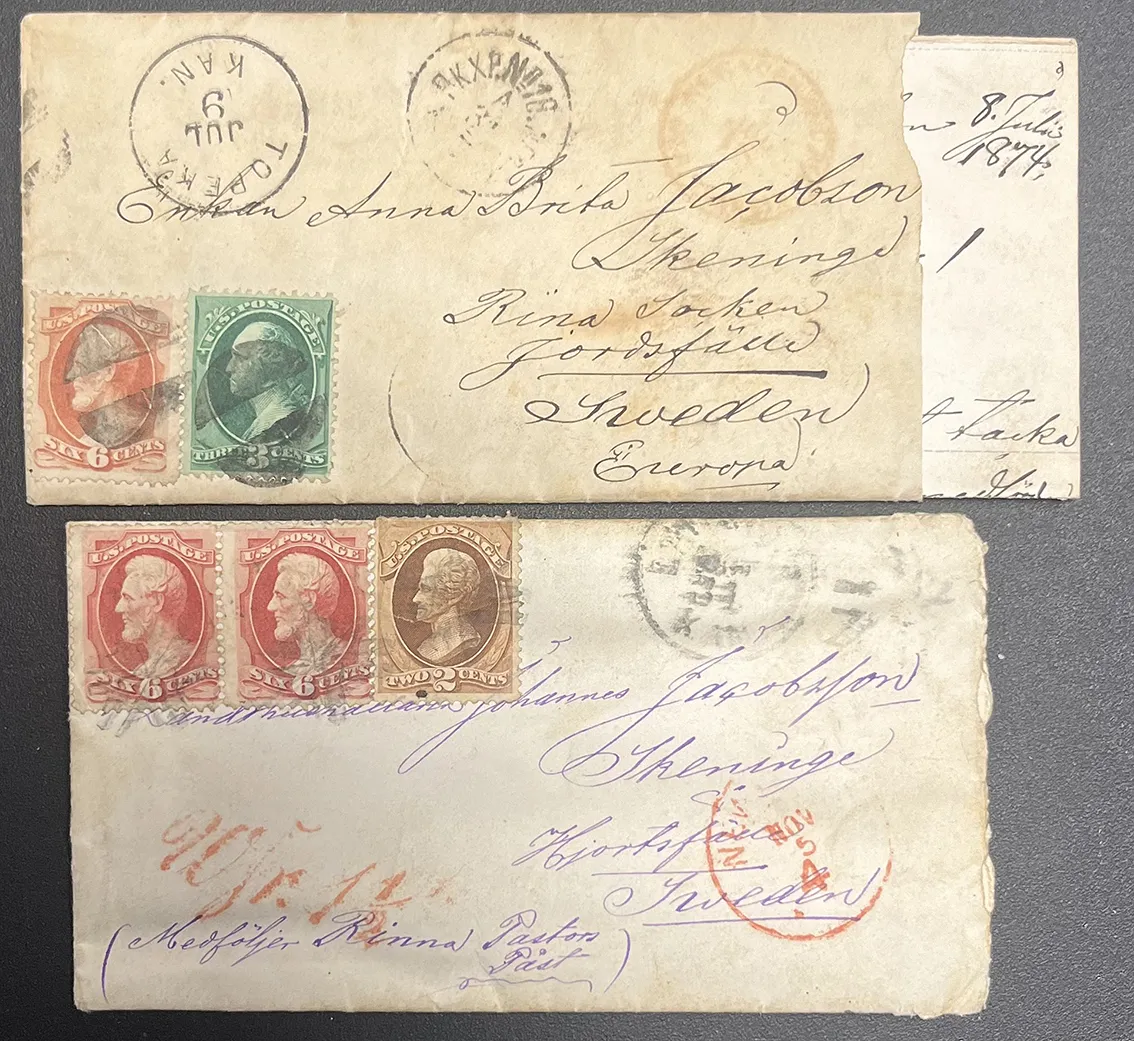 TOPEKA
KAN.
JUL
9
PKXP. No 18.
8. Julii
1874,
Enkan Anna Brita Jacobson
Skeninge
Rina Socken
Jordsfälle
Sweden
Europa
1
tacka
U.S. POSTAGE
SIX 6 CENTS
U.S. POSTAGE
THREE 3 CENTS
U.S. POSTAGE
SIX 6 CENTS
U.S. POSTAGE
SIX 6 CENTS
U.S. POSTAGE
TWO 2 CENTS
Johannes Jacobsson
Skeninge
Hjortsfälle
Sweden
NEW
NOV
5
(Medföljer Rinna Pastors
Påst)